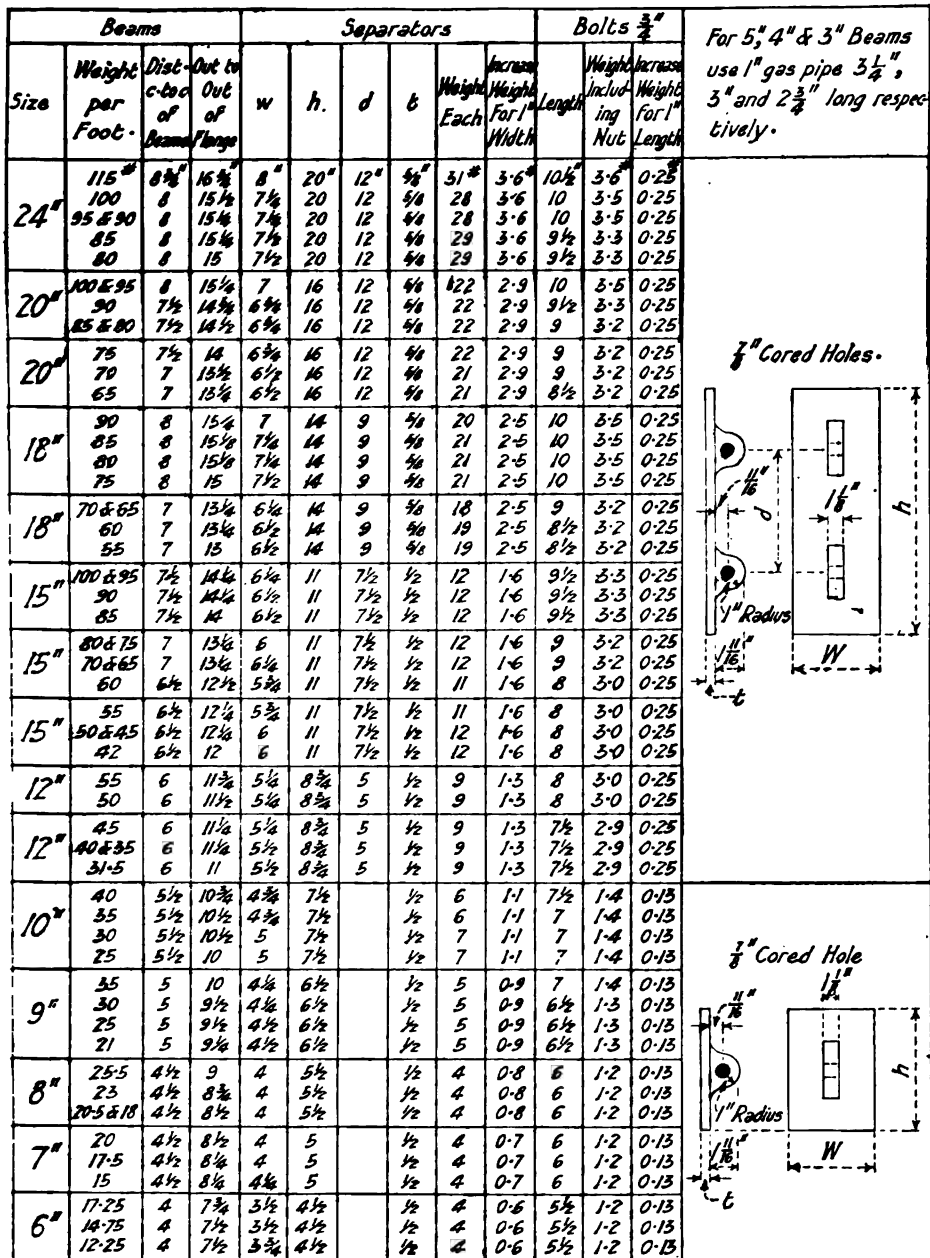 Beams Separators Bolts 3/4"
Size Weight per Foot. Dist. c-to-c of Beams Out to Out of Flange w h. d t Weight Each Increase Weight For 1" Width Length Weight Including Nut Increase Weight For 1" Length
For 5", 4" & 3" Beams
use 1" gas pipe 3 1/4",
3" and 2 3/4" long respec-
tively.
24"
115# 8 3/4" 16 3/4" 8" 20" 12" 5/8" 31# 3·6# 10 1/2" 3·6# 0·25#
100 8 15 1/2 7 1/4 20 12 5/8 28 3·6 10 3·5 0·25
95 & 90 8 15 1/4 7 1/4 20 12 5/8 28 3·6 10 3·5 0·25
85 8 15 1/4 7 1/2 20 12 5/8 29 3·6 9 1/2 3·3 0·25
80 8 15 7 1/2 20 12 5/8 29 3·6 9 1/2 3·3 0·25
20"
100 & 95 8 15 1/4 7 16 12 5/8 22 2·9 10 3·5 0·25
90 7 1/2 14 3/4 6 3/4 16 12 5/8 22 2·9 9 1/2 3·3 0·25
85 & 80 7 1/2 14 1/2 6 3/4 16 12 5/8 22 2·9 9 3·2 0·25
20"
75 7 1/2 14 6 3/4 16 12 5/8 22 2·9 9 3·2 0·25
70 7 13 1/2 6 1/2 16 12 5/8 21 2·9 9 3·2 0·25
65 7 13 1/4 6 1/2 16 12 5/8 21 2·9 8 1/2 3·2 0·25
18"
90 8 15 1/4 7 14 9 5/8 20 2·5 10 3·5 0·25
85 8 15 1/8 7 1/4 14 9 5/8 21 2·5 10 3·5 0·25
80 8 15 1/8 7 1/4 14 9 5/8 21 2·5 10 3·5 0·25
75 8 15 7 1/2 14 9 5/8 21 2·5 10 3·5 0·25
18"
70 & 65 7 13 1/4 6 1/4 14 9 5/8 18 2·5 9 3·2 0·25
60 7 13 1/4 6 1/2 14 9 5/8 19 2·5 8 1/2 3·2 0·25
55 7 13 6 1/2 14 9 5/8 19 2·5 8 1/2 3·2 0·25
15"
100 & 95 7 1/2 14 3/4 6 1/4 11 7 1/2 1/2 12 1·6 9 1/2 3·3 0·25
90 7 1/2 14 1/4 6 1/2 11 7 1/2 1/2 12 1·6 9 1/2 3·3 0·25
85 7 1/2 14 6 1/2 11 7 1/2 1/2 12 1·6 9 1/2 3·3 0·25
15"
80 & 75 7 13 1/4 6 11 7 1/2 1/2 12 1·6 9 3·2 0·25
70 & 65 7 13 1/4 6 1/4 11 7 1/2 1/2 12 1·6 9 3·2 0·25
60 6 1/2 12 1/2 5 3/4 11 7 1/2 1/2 11 1·6 8 3·0 0·25
15"
55 6 1/2 12 1/4 5 3/4 11 7 1/2 1/2 11 1·6 8 3·0 0·25
50 & 45 6 1/2 12 1/4 6 11 7 1/2 1/2 12 1·6 8 3·0 0·25
42 6 1/2 12 6 11 7 1/2 1/2 12 1·6 8 3·0 0·25
12"
55 6 11 3/4 5 1/4 8 3/4 5 1/2 9 1·3 8 3·0 0·25
50 6 11 1/2 5 1/4 8 3/4 5 1/2 9 1·3 8 3·0 0·25
12"
45 6 11 1/4 5 1/4 8 3/4 5 1/2 9 1·3 7 1/2 2·9 0·25
40 & 35 6 11 1/4 5 1/2 8 3/4 5 1/2 9 1·3 7 1/2 2·9 0·25
31·5 6 11 5 1/2 8 3/4 5 1/2 9 1·3 7 1/2 2·9 0·25
10"
40 5 1/2 10 3/4 4 3/4 7 1/2 1/2 6 1·1 7 1/2 1·4 0·13
35 5 1/2 10 1/2 4 3/4 7 1/2 1/2 6 1·1 7 1·4 0·13
30 5 1/2 10 1/2 5 7 1/2 1/2 7 1·1 7 1·4 0·13
25 5 1/2 10 5 7 1/2 1/2 7 1·1 7 1·4 0·13
9"
35 5 10 4 1/4 6 1/2 1/2 5 0·9 7 1·4 0·13
30 5 9 1/2 4 1/4 6 1/2 1/2 5 0·9 6 1/2 1·3 0·13
25 5 9 1/2 4 1/2 6 1/2 1/2 5 0·9 6 1/2 1·3 0·13
21 5 9 1/4 4 1/2 6 1/2 1/2 5 0·9 6 1/2 1·3 0·13
8"
25·5 4 1/2 9 4 5 1/2 1/2 4 0·8 6 1·2 0·13
23 4 1/2 8 3/4 4 5 1/2 1/2 4 0·8 6 1·2 0·13
20·5 & 18 4 1/2 8 1/2 4 5 1/2 1/2 4 0·8 6 1·2 0·13
7"
20 4 1/2 8 1/2 4 5 1/2 4 0·7 6 1·2 0·13
17·5 4 1/2 8 1/4 4 5 1/2 4 0·7 6 1·2 0·13
15 4 1/2 8 1/4 4 1/4 5 1/2 4 0·7 6 1·2 0·13
6"
17·25 4 7 3/4 3 1/2 4 1/2 1/2 4 0·6 5 1/2 1·2 0·13
14·75 4 7 1/2 3 1/2 4 1/2 1/2 4 0·6 5 1/2 1·2 0·13
12·25 4 7 1/2 3 3/4 4 1/2 1/2 4 0·6 5 1/2 1·2 0·13
7/8" Cored Holes.
11/16"
d
1 1/8"
h
1" Radius
1 11/16"
W
t
7/8" Cored Hole
1 1/8"
11/16"
h
1" Radius
1 11/16"
W
t